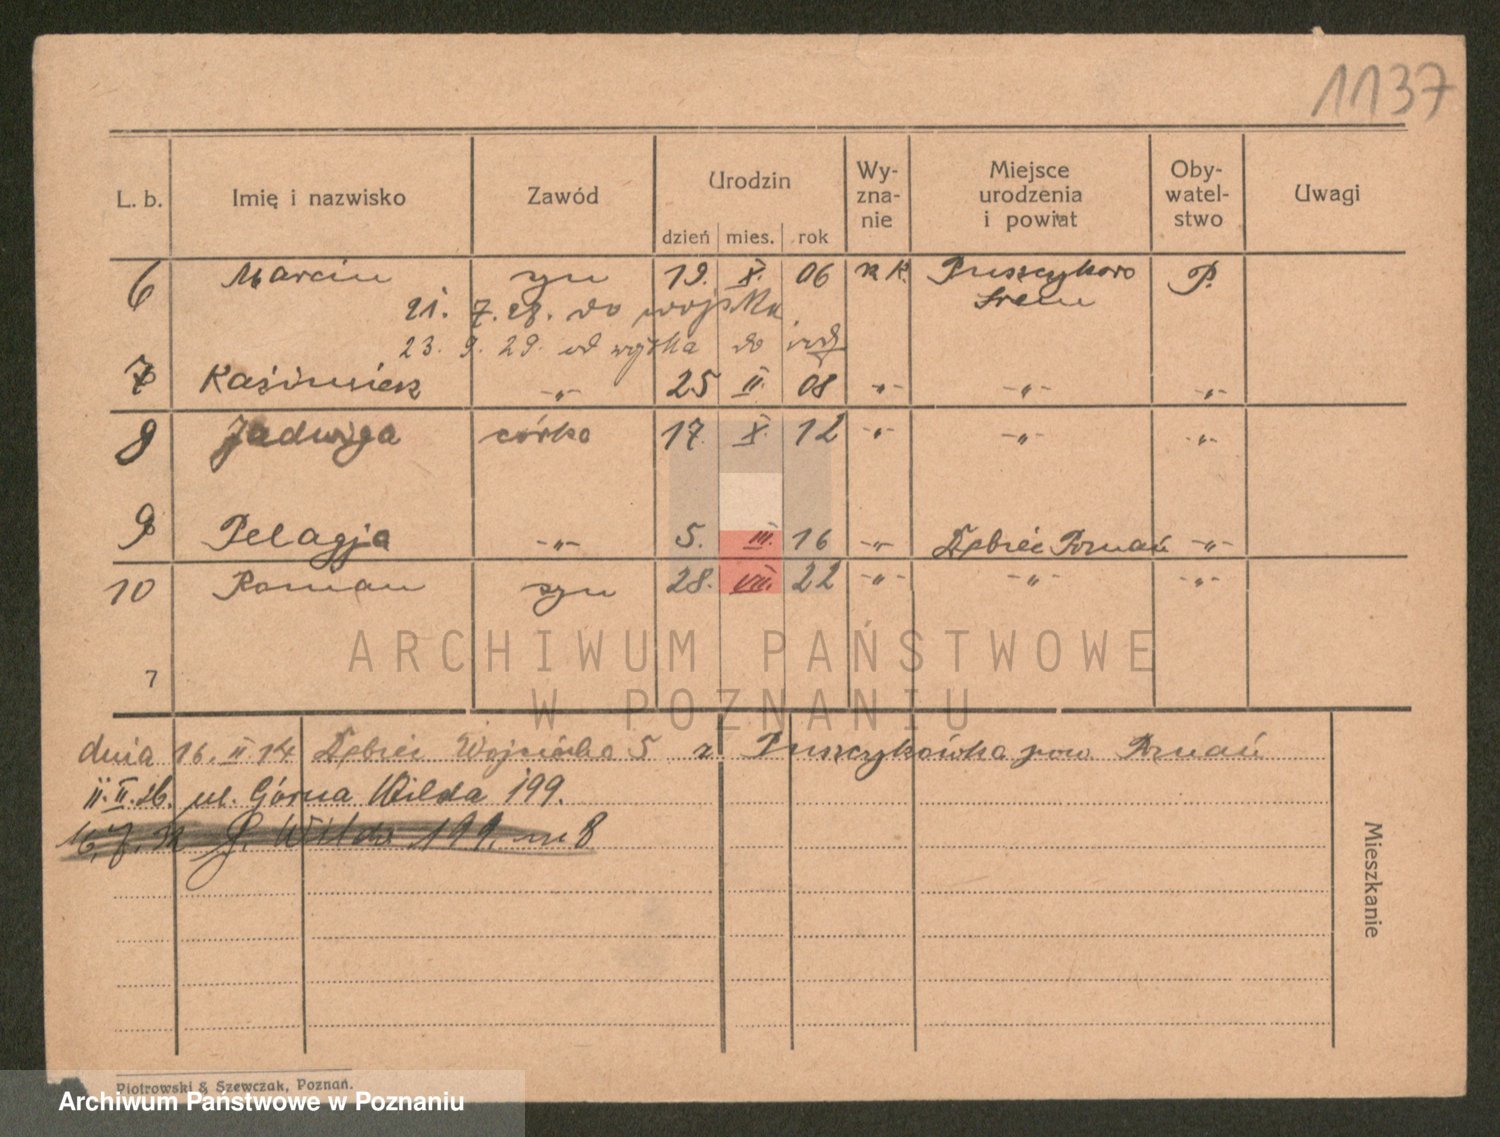 1137
L. b. Imię i nazwisko Zawód Urodzin dzień mies. rok Wy-zna-nie Miejsce urodzenia i powiat Oby-watel-stwo Uwagi
6 Marcin syn 19. X. 06 rk. Puszczykowo Śrem P.
21. 7. 28. do wojska
23. 9. 29. od wojska do
7 Kaźimierz -"- 25 II. 08 -"- -"- -"-
8 Jadwiga córka 17. X. 12 -"- -"- -"-
9 Pelagja -"- 5. III. 16 -"- Dębiec Poznań -"-
10 Roman syn 28. VII. 22 -"- -"- -"-
ARCHIWUM PAŃSTWOWE
7
W POZNANIU
dnia 16. II. 14 Dębiec 5 z Puszczykówka pow Poznań
II. II. 26. ul. Górna Wilda 199.
G. Wilda 199. m 8
Mieszkanie
Piotrowski & Szewczak, Poznań.
Archiwum Państwowe w Poznaniu